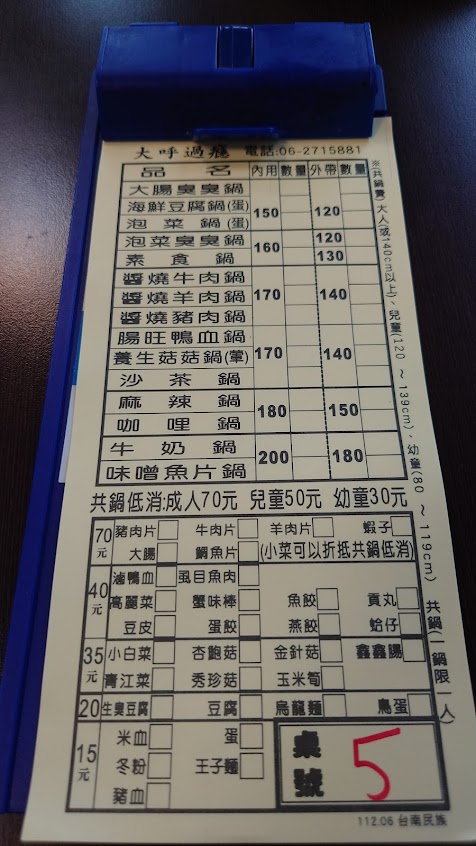 大呼過癮 電話:06-2715881
品名 內用 數量 外帶 數量
大腸臭臭鍋
海鮮豆腐鍋(蛋) 150 120
泡菜鍋(蛋)
泡菜臭臭鍋 160 120
素食鍋 130
醬燒牛肉鍋
醬燒羊肉鍋 170 140
醬燒豬肉鍋
腸旺鴨血鍋
養生菇菇鍋(葷) 170 140
沙茶鍋
麻辣鍋 180 150
咖哩鍋
牛奶鍋 200 180
味噌魚片鍋
※(共鍋費)大人(或140cm以上)、兒童(120~139cm)、幼童(80~119cm) 共鍋(一鍋限一人)
共鍋低消:成人70元 兒童50元 幼童30元
70元 豬肉片 牛肉片 羊肉片 蝦子
大腸 鯛魚片 (小菜可以折抵共鍋低消)
40元 滷鴨血 虱目魚肉
高麗菜 蟹味棒 魚餃 貢丸
豆皮 蛋餃 燕餃 蛤仔
35元 小白菜 杏鮑菇 金針菇 鑫鑫腸
青江菜 秀珍菇 玉米筍
20 生臭豆腐 豆腐 烏龍麵 鳥蛋
15元 米血 蛋
冬粉 王子麵
豬血
桌號 5
112.06 台南民族